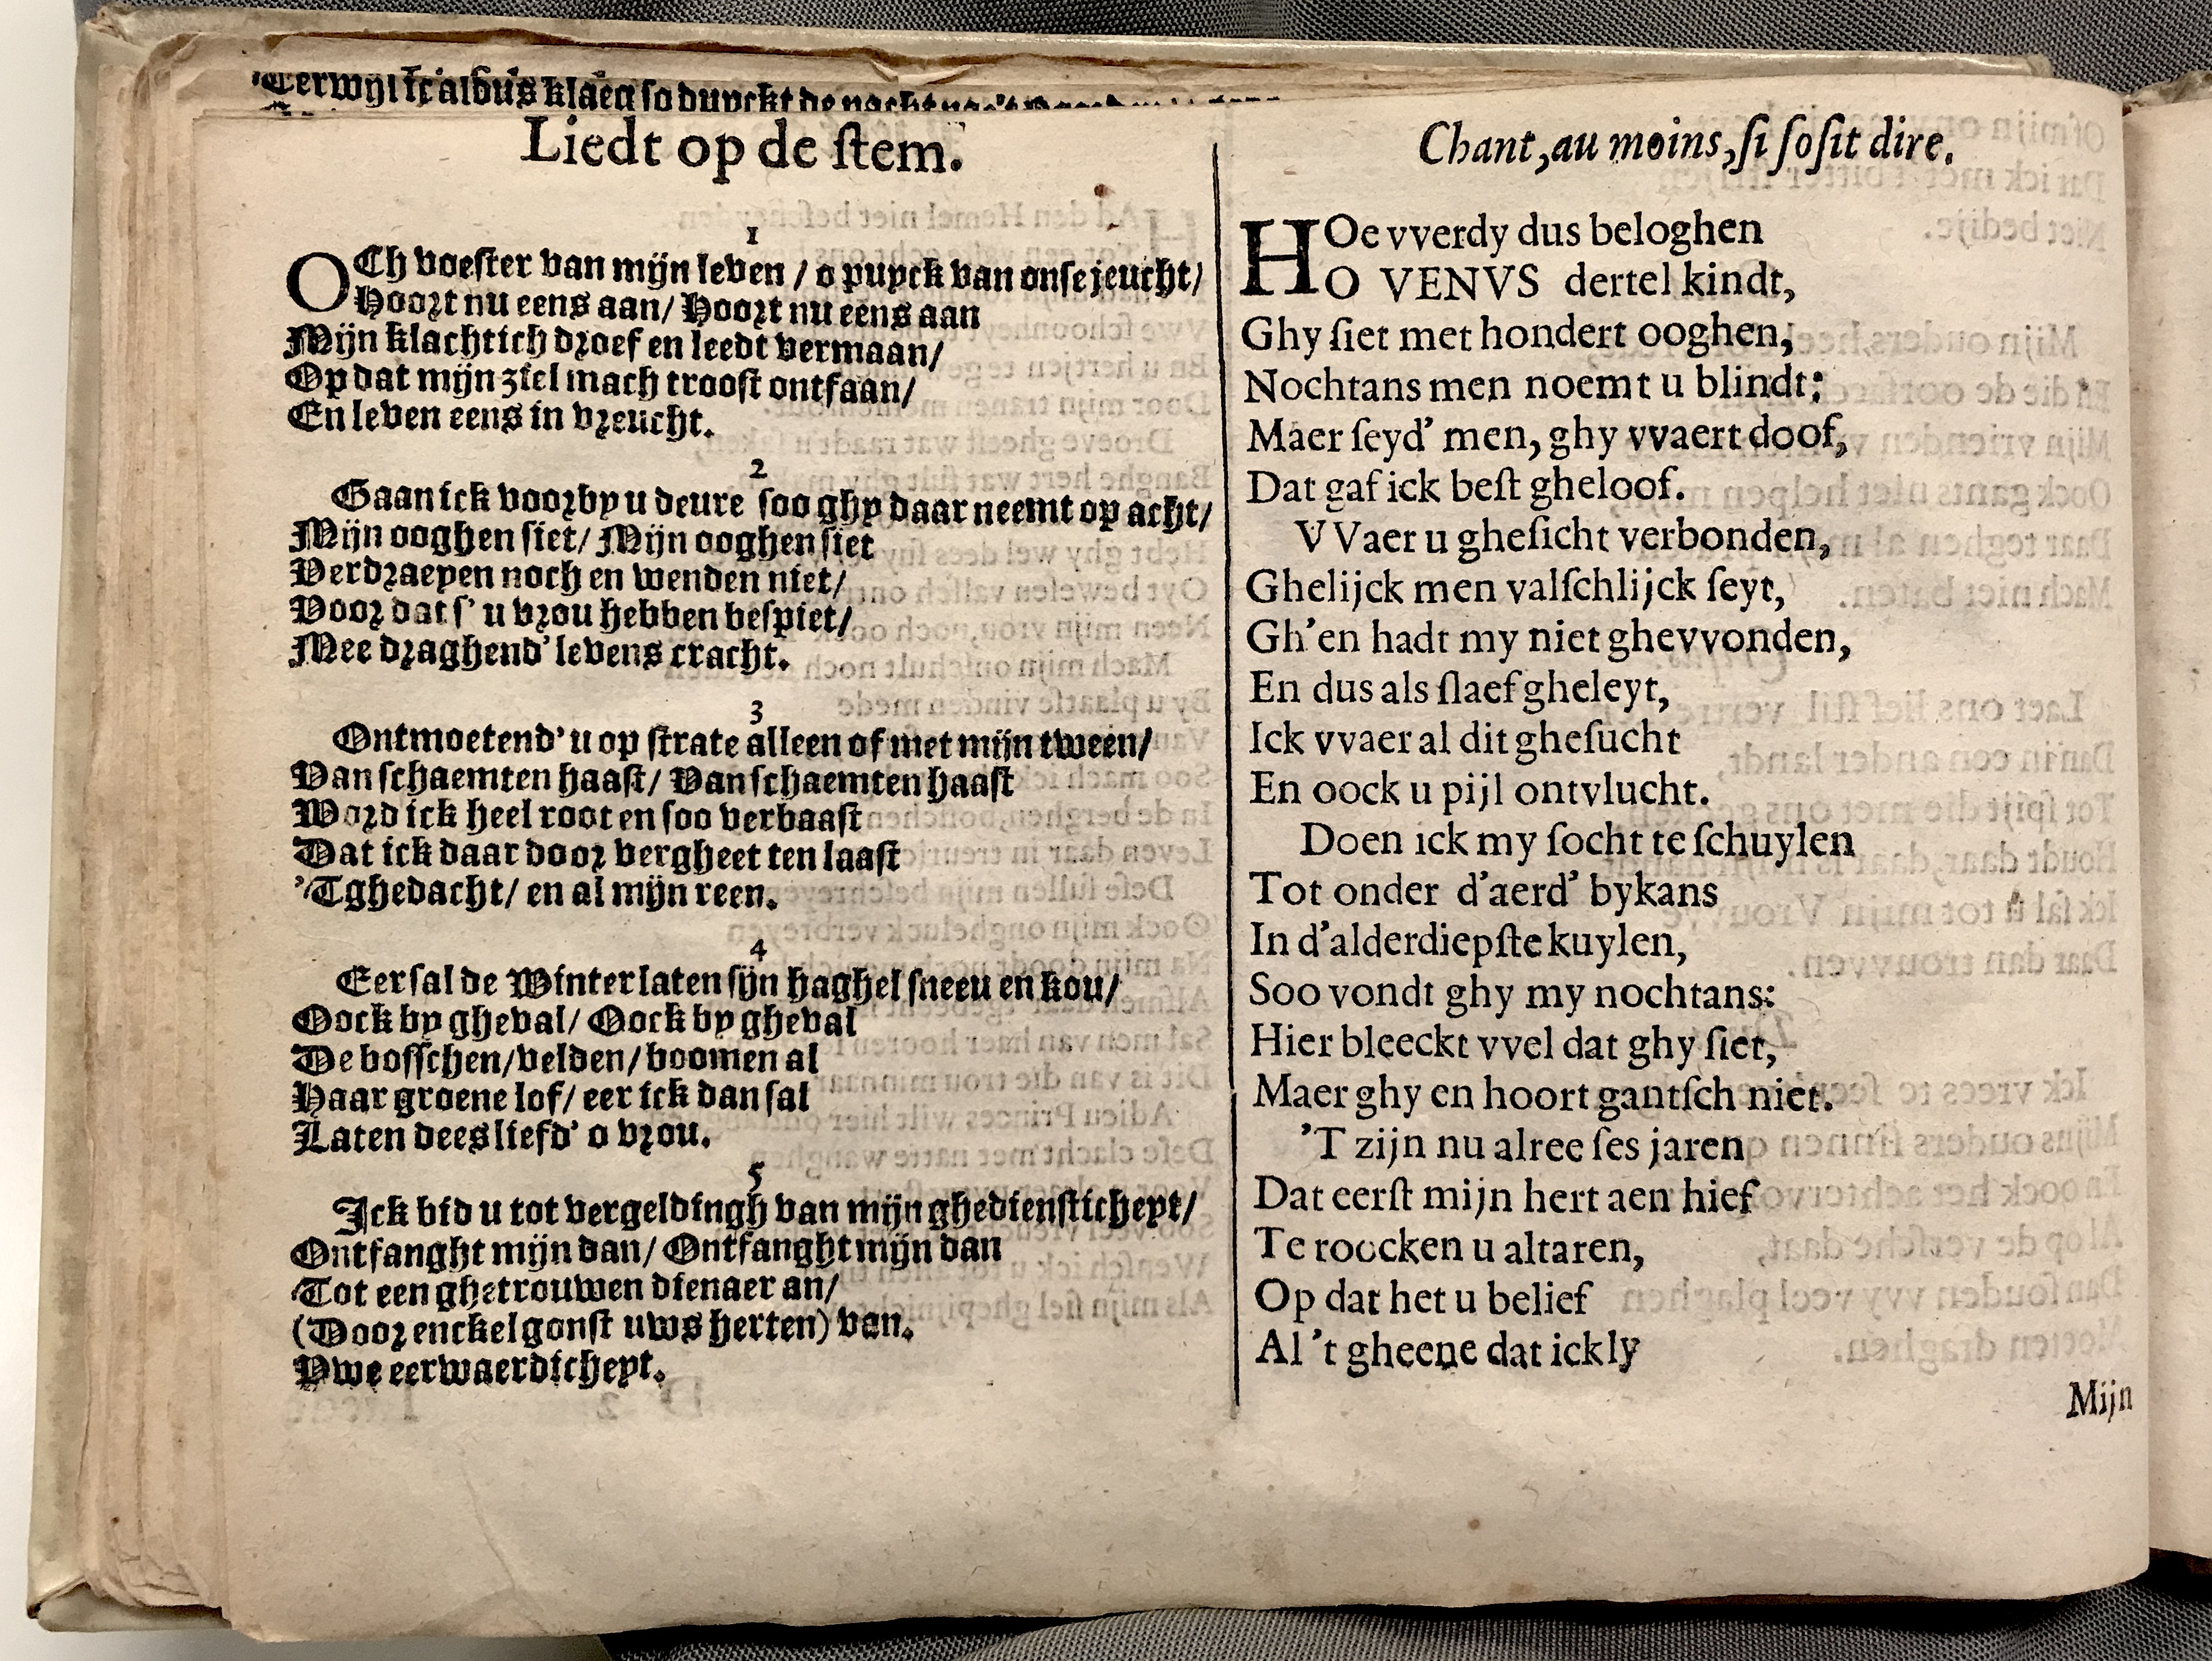 Terwyl ick aldus klaeg so dunckt de nacht
Liedt op de ſtem.
1
OCh voeſter van mijn leven / o puyck van onſe jeucht /
Hoort nu eens aan / Hoort nu eens aan
Mijn klachtich droef en leedt vermaan /
Op dat mijn ziel mach trooſt ontfaan /
En leven eens in vreucht.
2
Gaan ick voorby u deure ſoo ghy daar neemt op acht /
Mijn ooghen ſiet / Mijn ooghen ſiet
Verdraeyen noch en wenden niet /
Voor dat ſ' u vrou hebben beſpiet /
Mee draghend' levens cracht.
3
Ontmoetend' u op ſtrate alleen of met mijn tween /
Van ſchaemten haaſt / Van ſchaemten haaſt
Word ick heel root en ſoo verbaaſt
Dat ick daar door vergheet ten laaſt
'Tghedacht / en al mijn reen.
4
Eer ſal de Winter laten ſijn haghel ſneeu en kou /
Oock by gheval / Oock by gheval
De boſſchen / velden / boomen al
Haar groene lof / eer ick dan ſal
Laten dees liefd' o vrou.
5
Ick bid u tot vergeldingh van mijn ghedienſticheyt /
Ontfanght mijn dan / Ontfanght mijn dan
Tot een ghetrouwen dienaer an /
(Door enckel gonſt uws herten) van.
Vwe eerwaerdicheyt.
Chant, au moins, ſi ſoſit dire.
HOe vverdy dus beloghen
O VENVS dertel kindt,
Ghy ſiet met hondert ooghen;
Nochtans men noemt u blindt:
Maer ſeyd' men, ghy vvaert doof,
Dat gaf ick beſt gheloof.
VVaer u gheſicht verbonden,
Ghelijck men valſchlijck ſeyt,
Gh'en hadt my niet ghevvonden,
En dus als ſlaef gheleyt,
Ick vvaer al dit gheſucht
En oock u pijl ontvlucht.
Doen ick my ſocht te ſchuylen
Tot onder d'aerd' bykans
In d'alderdiepſte kuylen,
Soo vondt ghy my nochtans:
Hier bleeckt vvel dat ghy ſiet,
Maer ghy en hoort gantſch niet.
'T zijn nu alree ſes jaren
Dat eerſt mijn hert aen hief
Te roocken u altaren,
Op dat het u belief
Al 't gheene dat ickly
Mijn